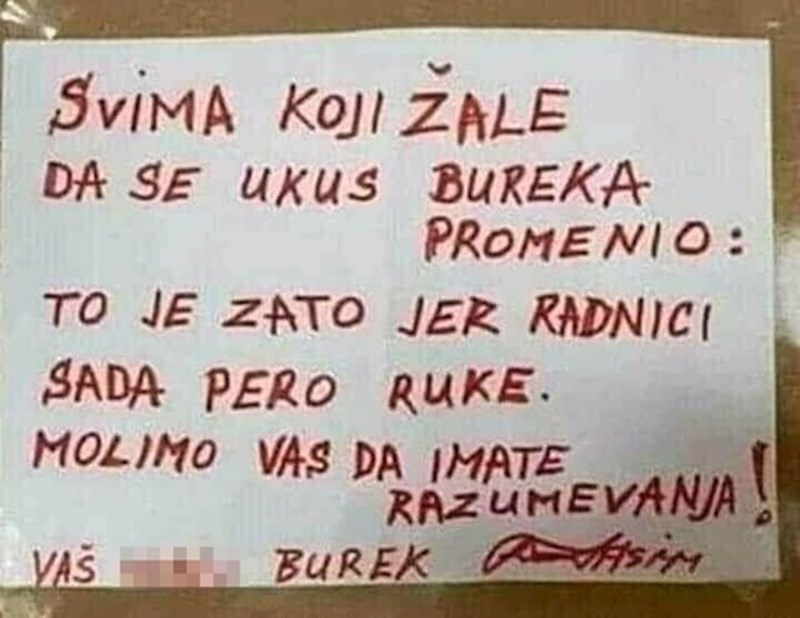 SVIMA KOJI ŽALE
DA SE UKUS BUREKA
PROMENIO:
TO JE ZATO JER RADNICI
SADA PERO RUKE.
MOLIMO VAS DA IMATE
RAZUMEVANJA!
VAŠ BUREK